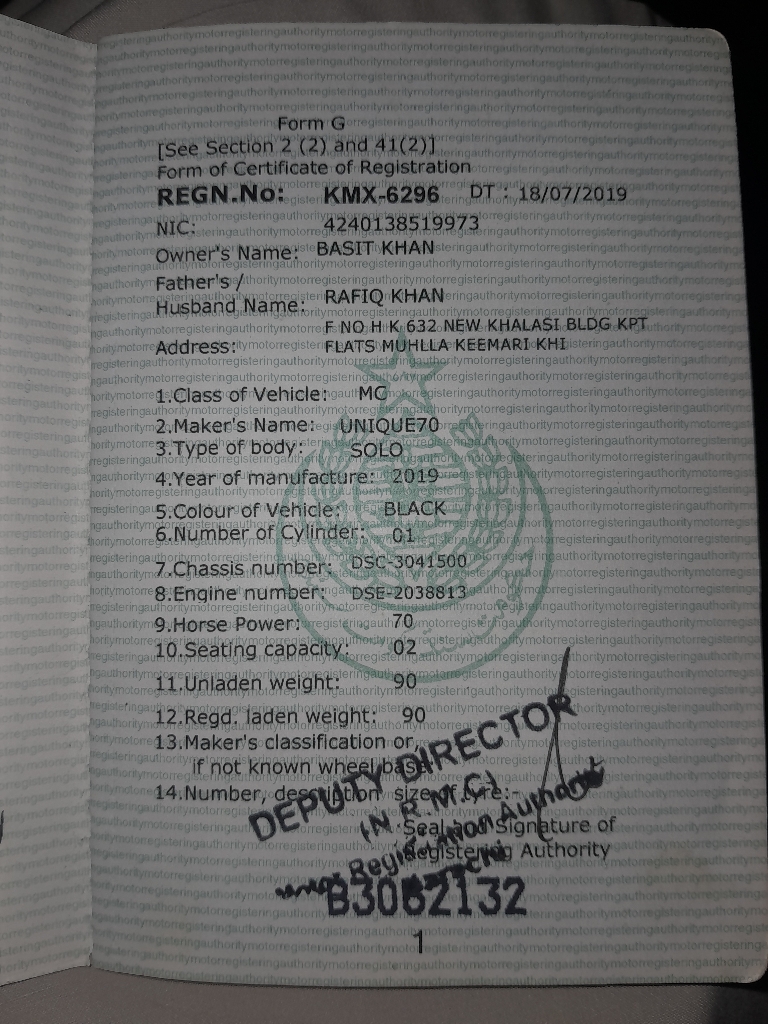 Form G
[See Section 2 (2) and 41(2)]
Form of Certificate of Registration
REGN.No: KMX-6296 DT : 18/07/2019
NIC: 4240138519973
Owner's Name: BASIT KHAN
Father's /
Husband Name: RAFIQ KHAN
F NO H K 632 NEW KHALASI BLDG KPT
Address: FLATS MUHLLA KEEMARI KHI
1.Class of Vehicle: MC
2.Maker's Name: UNIQUE70
3.Type of body: SOLO
4.Year of manufacture: 2019
5.Colour of Vehicle: BLACK
6.Number of Cylinder: 01
7.Chassis number: DSC-3041500
8.Engine number: DSE-2038813
9.Horse Power: 70
10.Seating capacity: 02
11.Unladen weight: 90
12.Regd. laden weight: 90
13.Maker's classification or,
if not known wheel base
14.Number, description size of tyre:-
DEPUTY DIRECTOR
IN R.M.C)
Registration Authority
Seal and Signature of
Registering Authority
B3062132
1